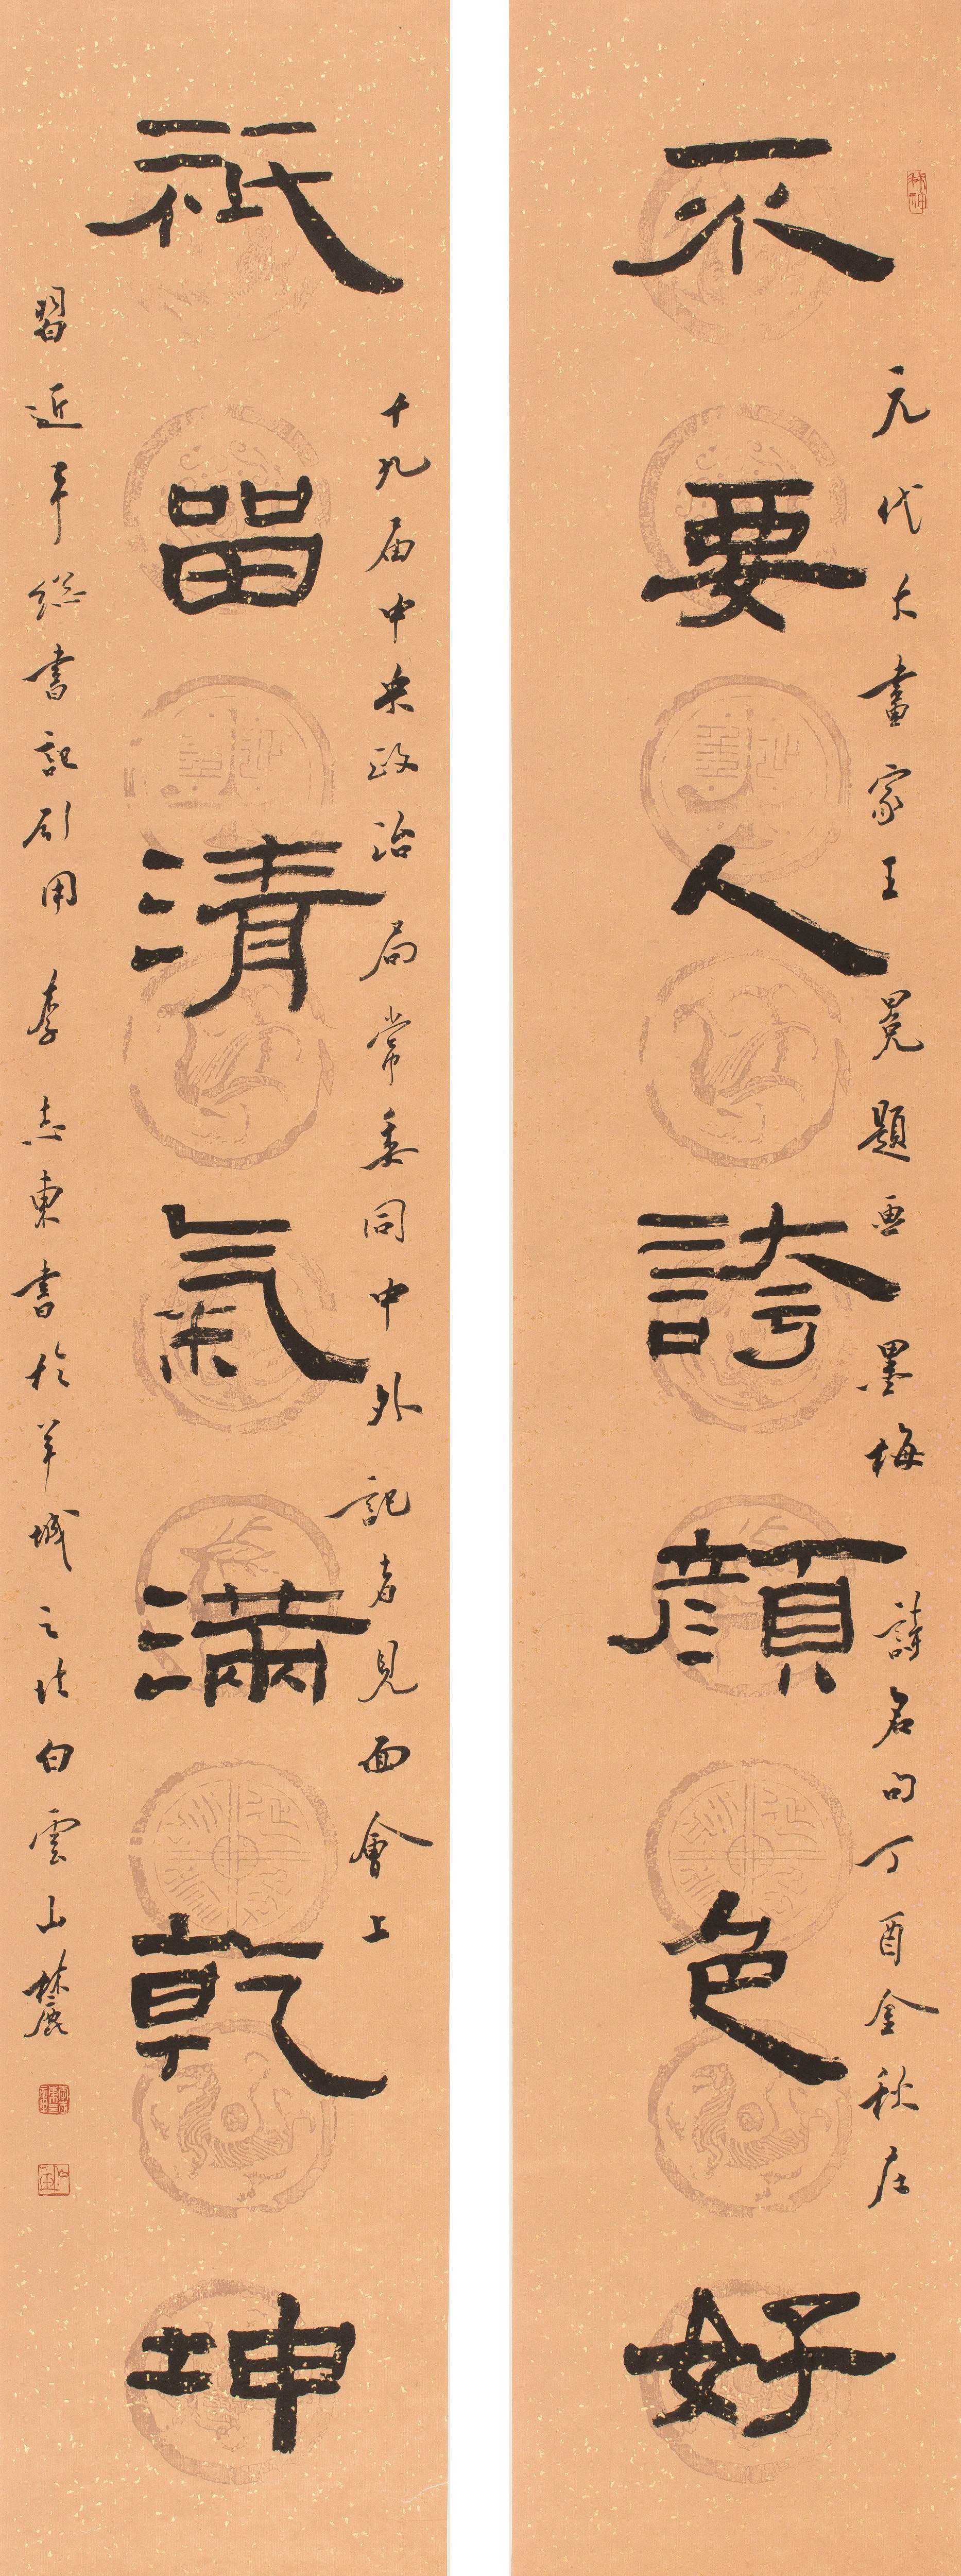 元代大畫家王冕題画墨梅詩名句丁酉金秋在
不要人誇顔色好
十九届中央政治局常委同中外記者見面會上
祇留清氣滿乾坤
習近平総書記引用李志東書於羊城之北白雲山麓